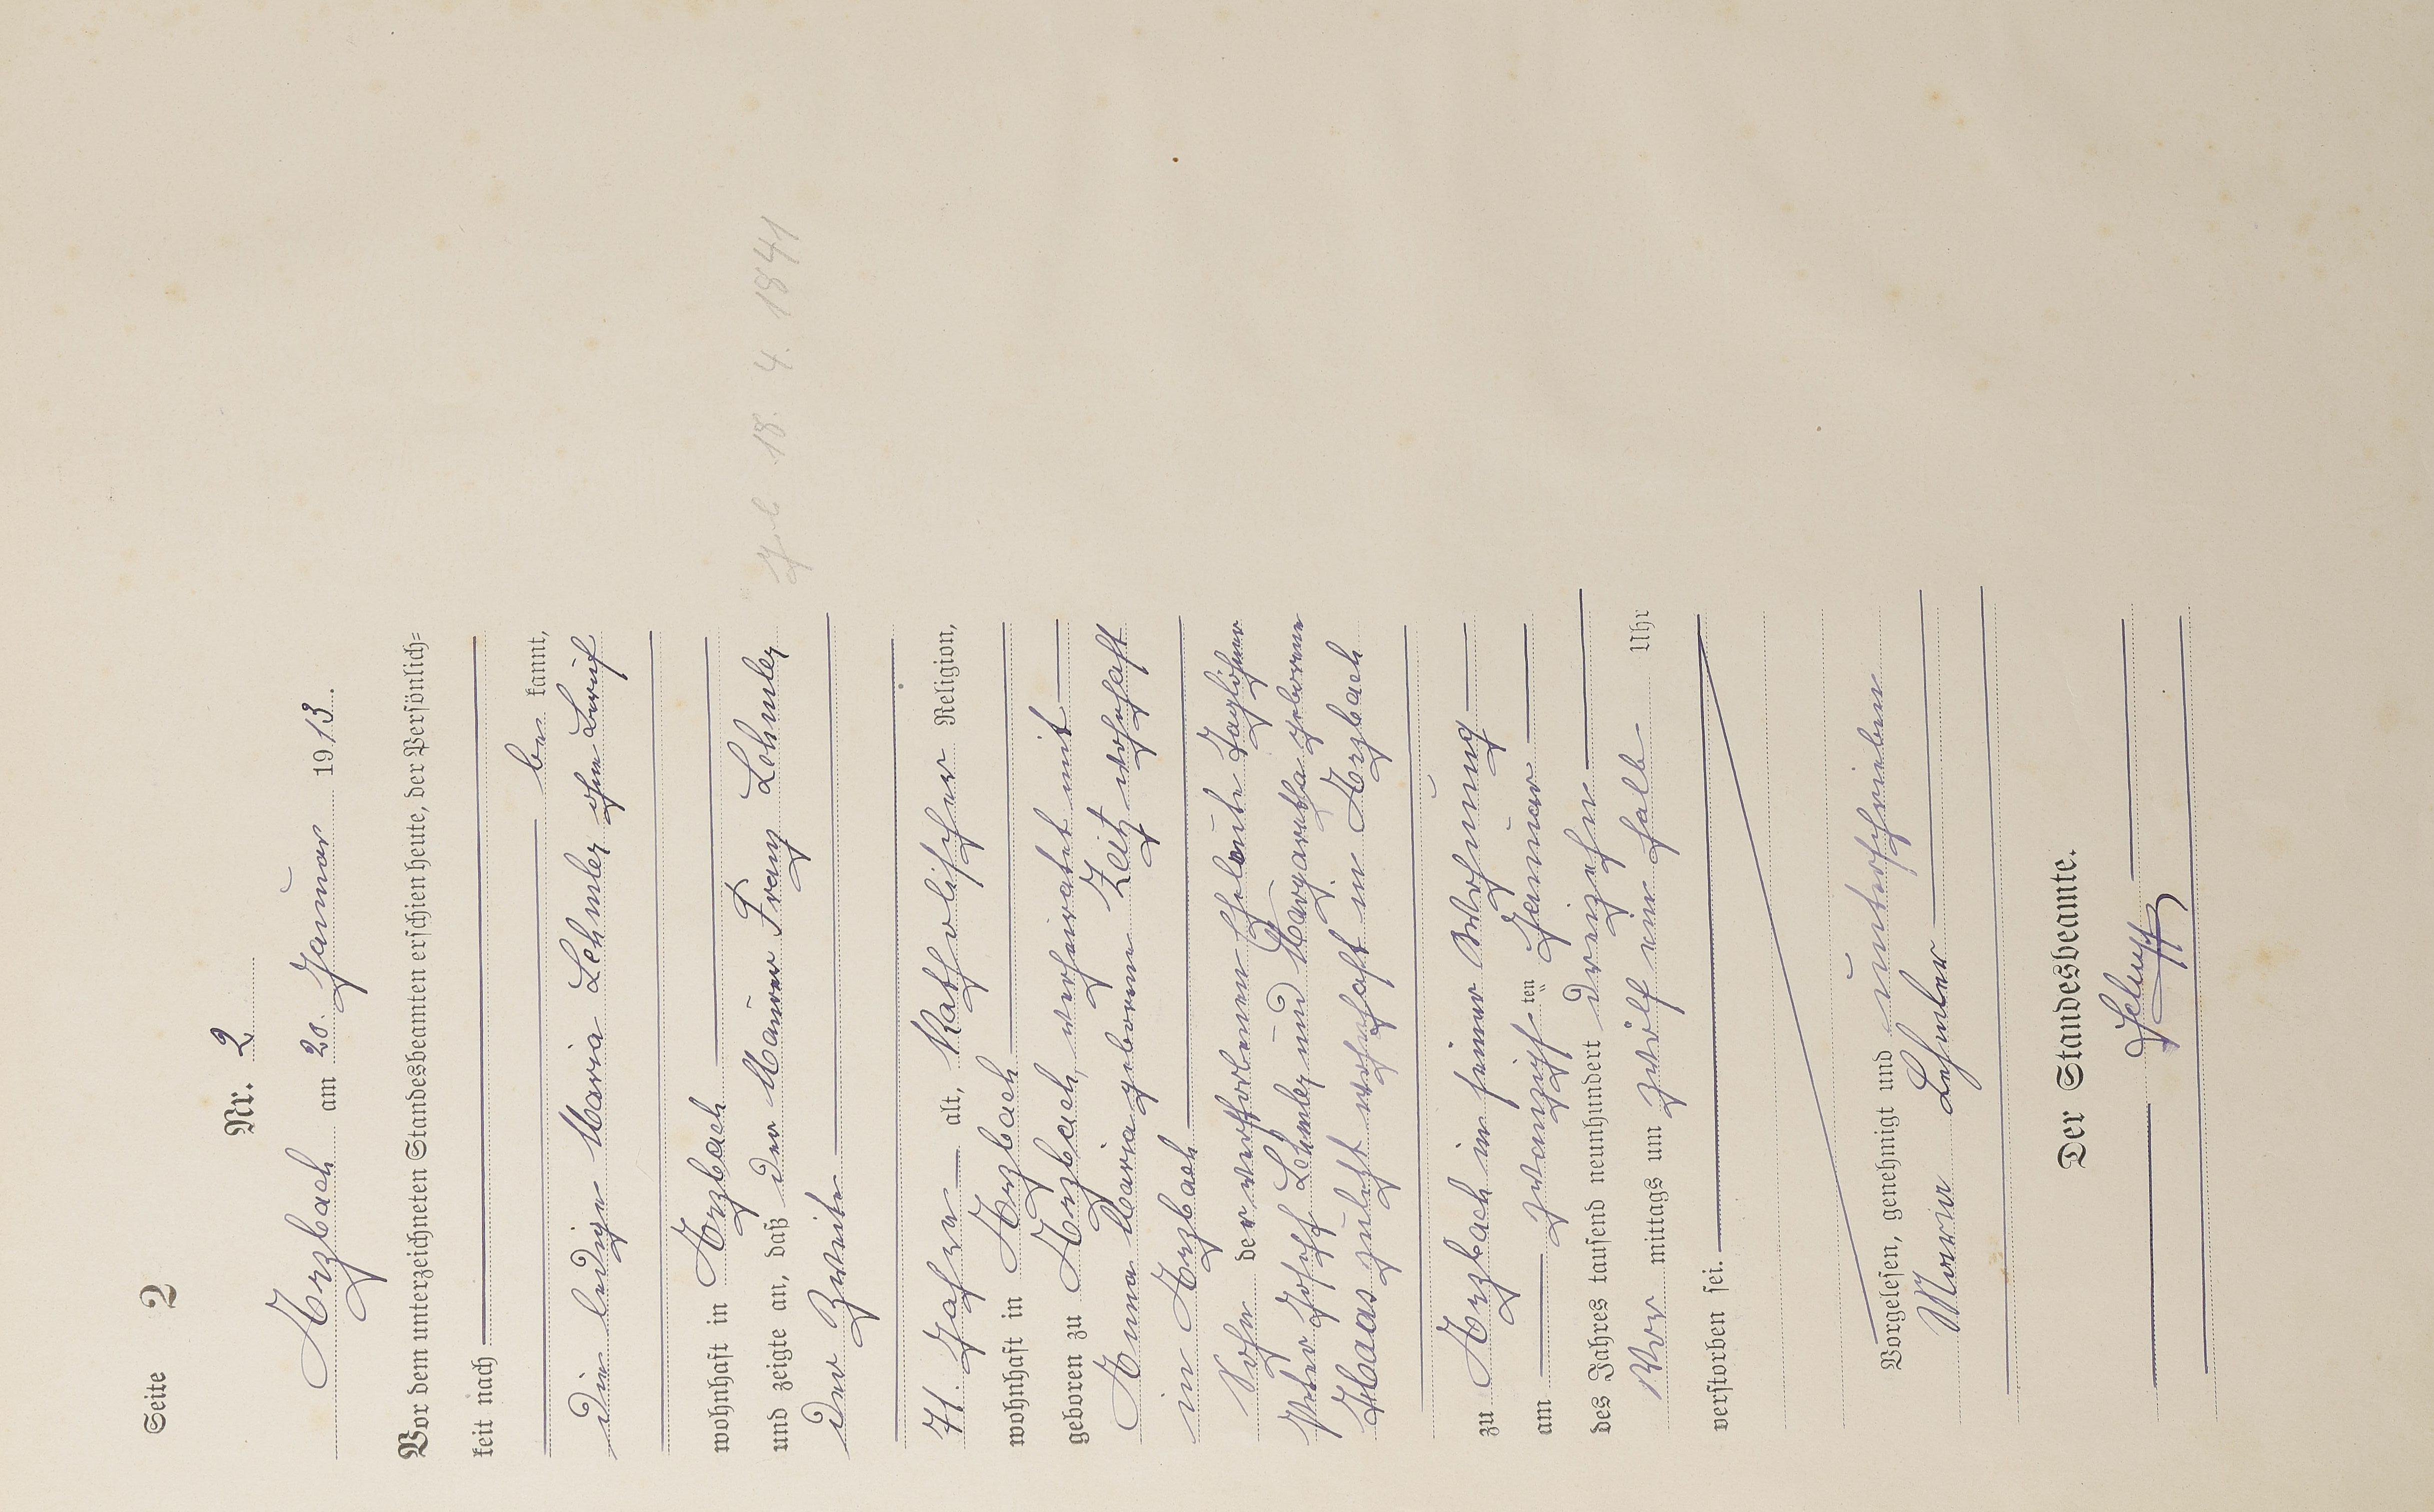 Seite 2
Nr. 2
Arzbach am 20. Januar 1913.
Vor dem unterzeichneten Standesbeamten erschien heute, der Persönlich-
keit nach
be kannt,
die ledige Maria Lehmler ohne Beruf
wohnhaft in Arzbach
und zeigte an, daß der Maurer Franz Lehmler
der Zweite
Geb 18. 4. 1841
71. Jahre alt, Katholischer Religion,
wohnhaft in Arzbach
geboren zu Arzbach, verheiratet mit
Anna Maria geborene Zeitz wohnhaft
in Arzbach
Sohn der verstorbenen Eheleute Taglöhner
Peter Josef Lehmler und Margaretha geborene
Haas zuletzt wohnhaft in Arzbach
zu Arzbach in seiner Wohnung
am zwanzigsten Januar
des Jahres tausend neunhundert dreizehn
Vor mittags um zwölf ein halb Uhr
verstorben sei.
Vorgelesen, genehmigt und unterschrieben
Maria Lehmler
Der Standesbeamte.